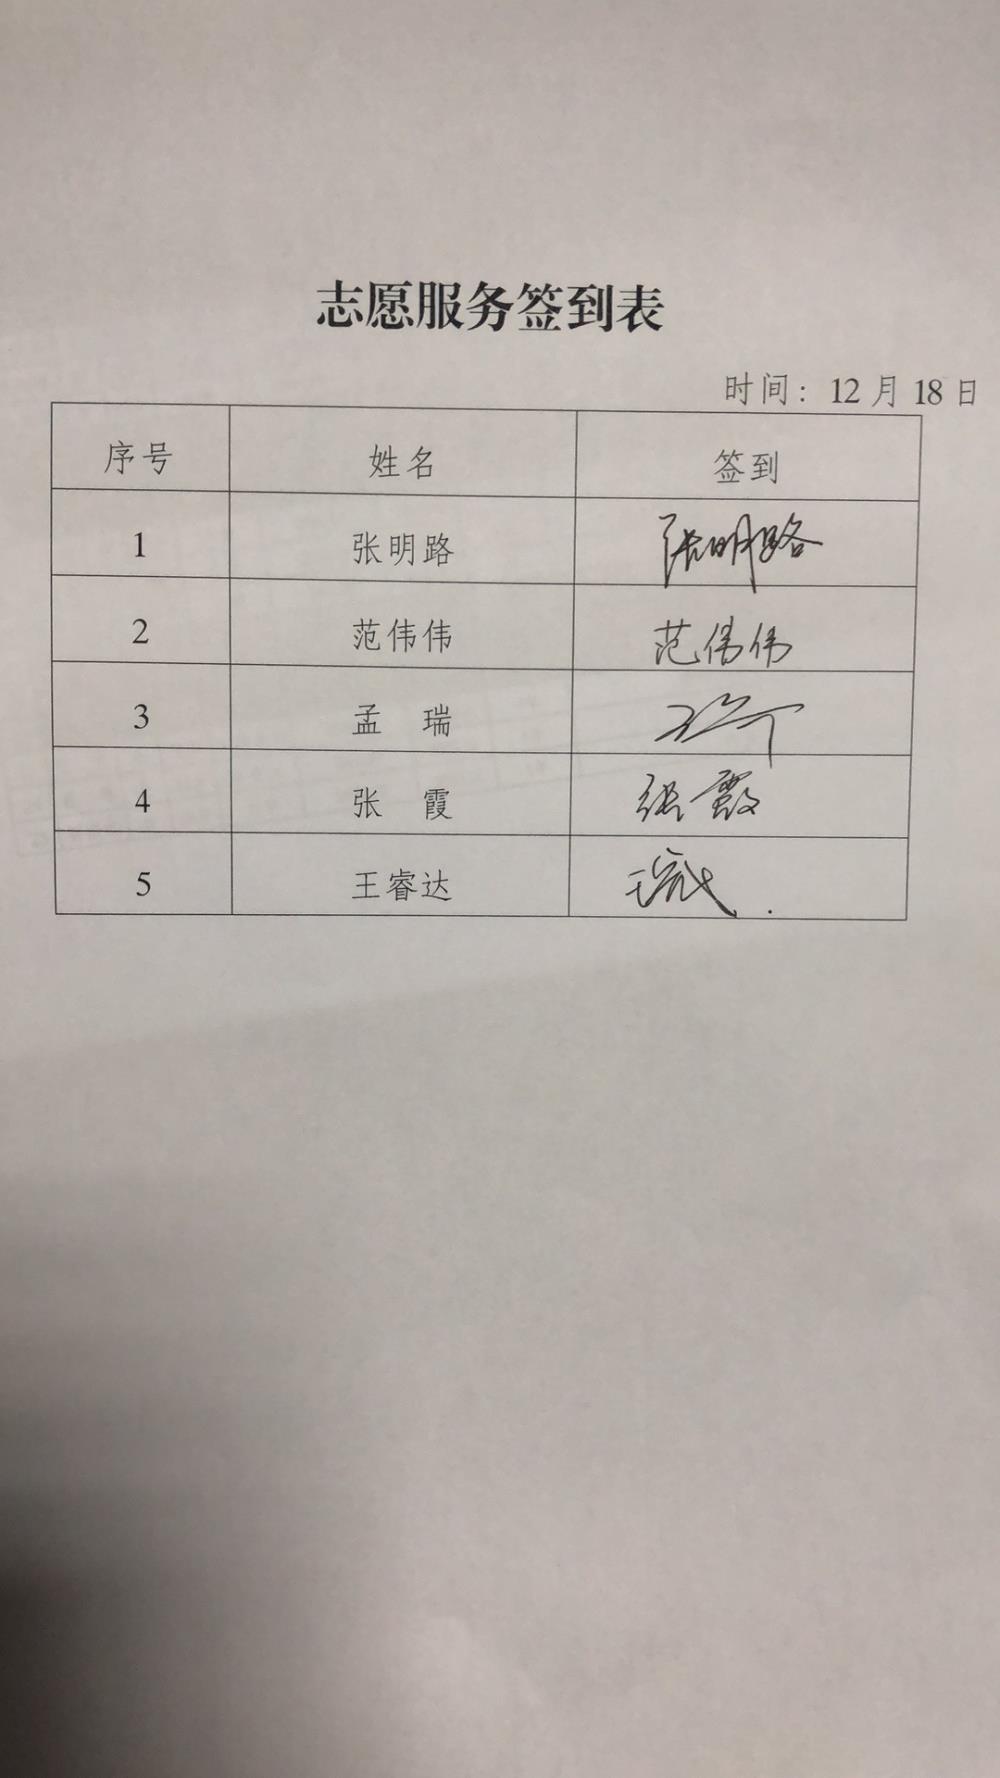 志愿服务签到表
时间：12月18日
序号 姓名 签到
1 张明路 张明路
2 范伟伟 范伟伟
3 孟 瑞
4 张 霞 张霞
5 王睿达